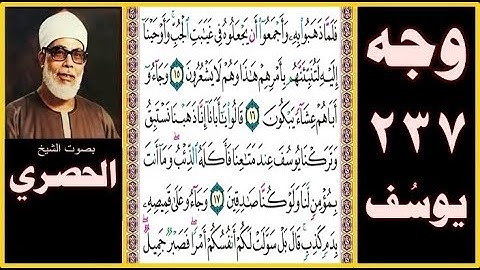 وجه
٢٣٧
يوسُف
فَلَمَّا ذَهَبُوا۟ بِهِۦ وَأَجْمَعُوٓا۟ أَن يَجْعَلُوهُ فِى غَيَـٰبَتِ ٱلْجُبِّ ۚ وَأَوْحَيْنَآ
إِلَيْهِ لَتُنَبِّئَنَّهُم بِأَمْرِهِمْ هَـٰذَا وَهُمْ لَا يَشْعُرُونَ ١٥ وَجَآءُوٓ
أَبَاهُمْ عِشَآءً يَبْكُونَ ١٦ قَالُوا۟ يَـٰٓأَبَانَآ إِنَّا ذَهَبْنَا نَسْتَبِقُ
وَتَرَكْنَا يُوسُفَ عِندَ مَتَـٰعِنَا فَأَكَلَهُ ٱلذِّئْبُ ۖ وَمَآ أَنتَ
بِمُؤْمِنٍ لَّنَا وَلَوْ كُنَّا صَـٰدِقِينَ ١٧ وَجَآءُو عَلَىٰ قَمِيصِهِۦ
بِدَمٍ كَذِبٍ ۚ قَالَ بَلْ سَوَّلَتْ لَكُمْ أَنفُسُكُمْ أَمْرًا ۖ فَصَبْرٌ جَمِيلٌ ۖ
بصوت الشيخ
الحصري